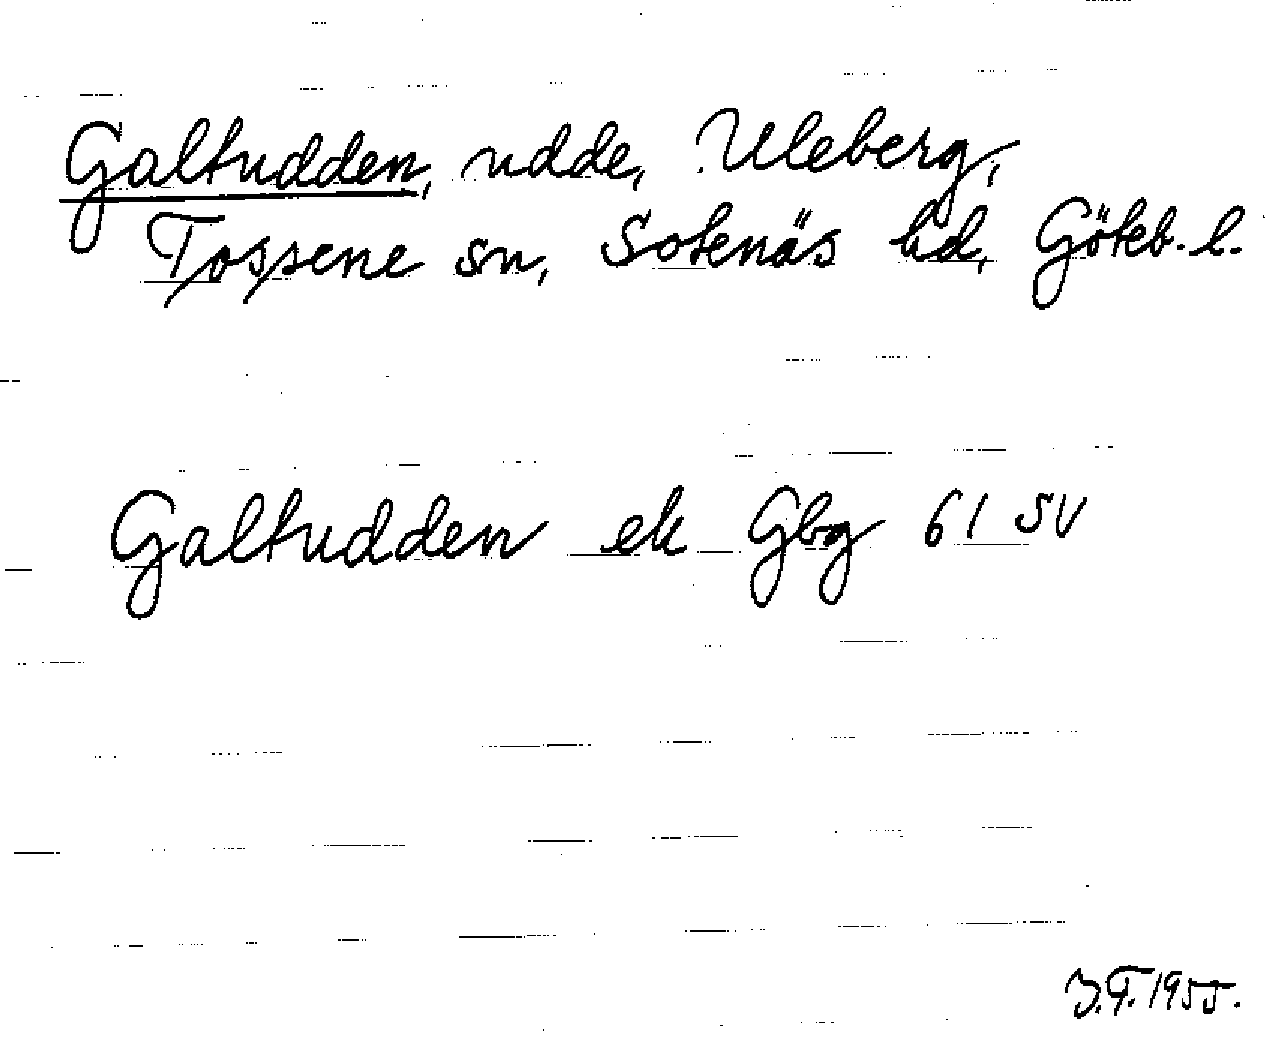 Galtudden, udde, Uleberg,
Tossene sn, Sotenäs hd, Göteb. l.
Galtudden ek Gbg 61 SV
1955.